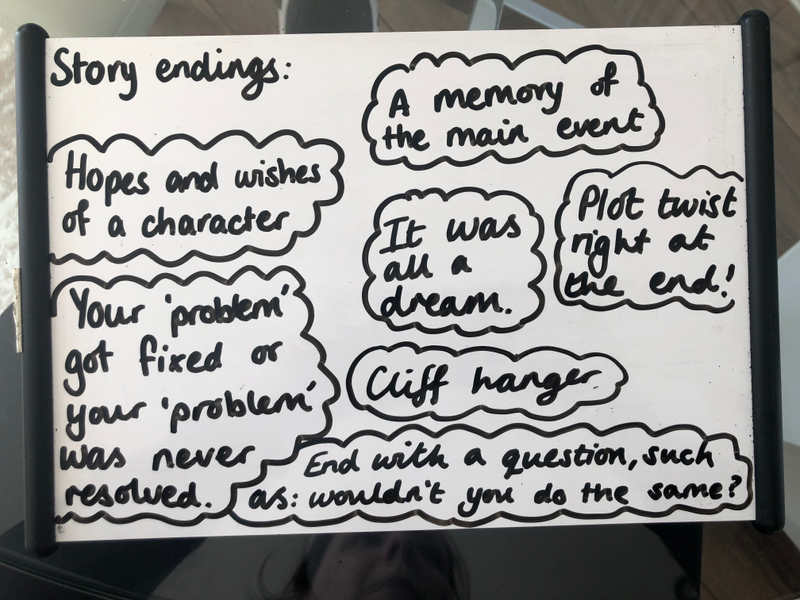 Story endings:
A memory of
the main event
Hopes and wishes
of a character
It was
all a
dream.
Plot twist
right at
the end!
Your 'problem'
got fixed or
your 'problem'
was never
resolved.
Cliff hanger
End with a question, such
as: wouldn't you do the same?